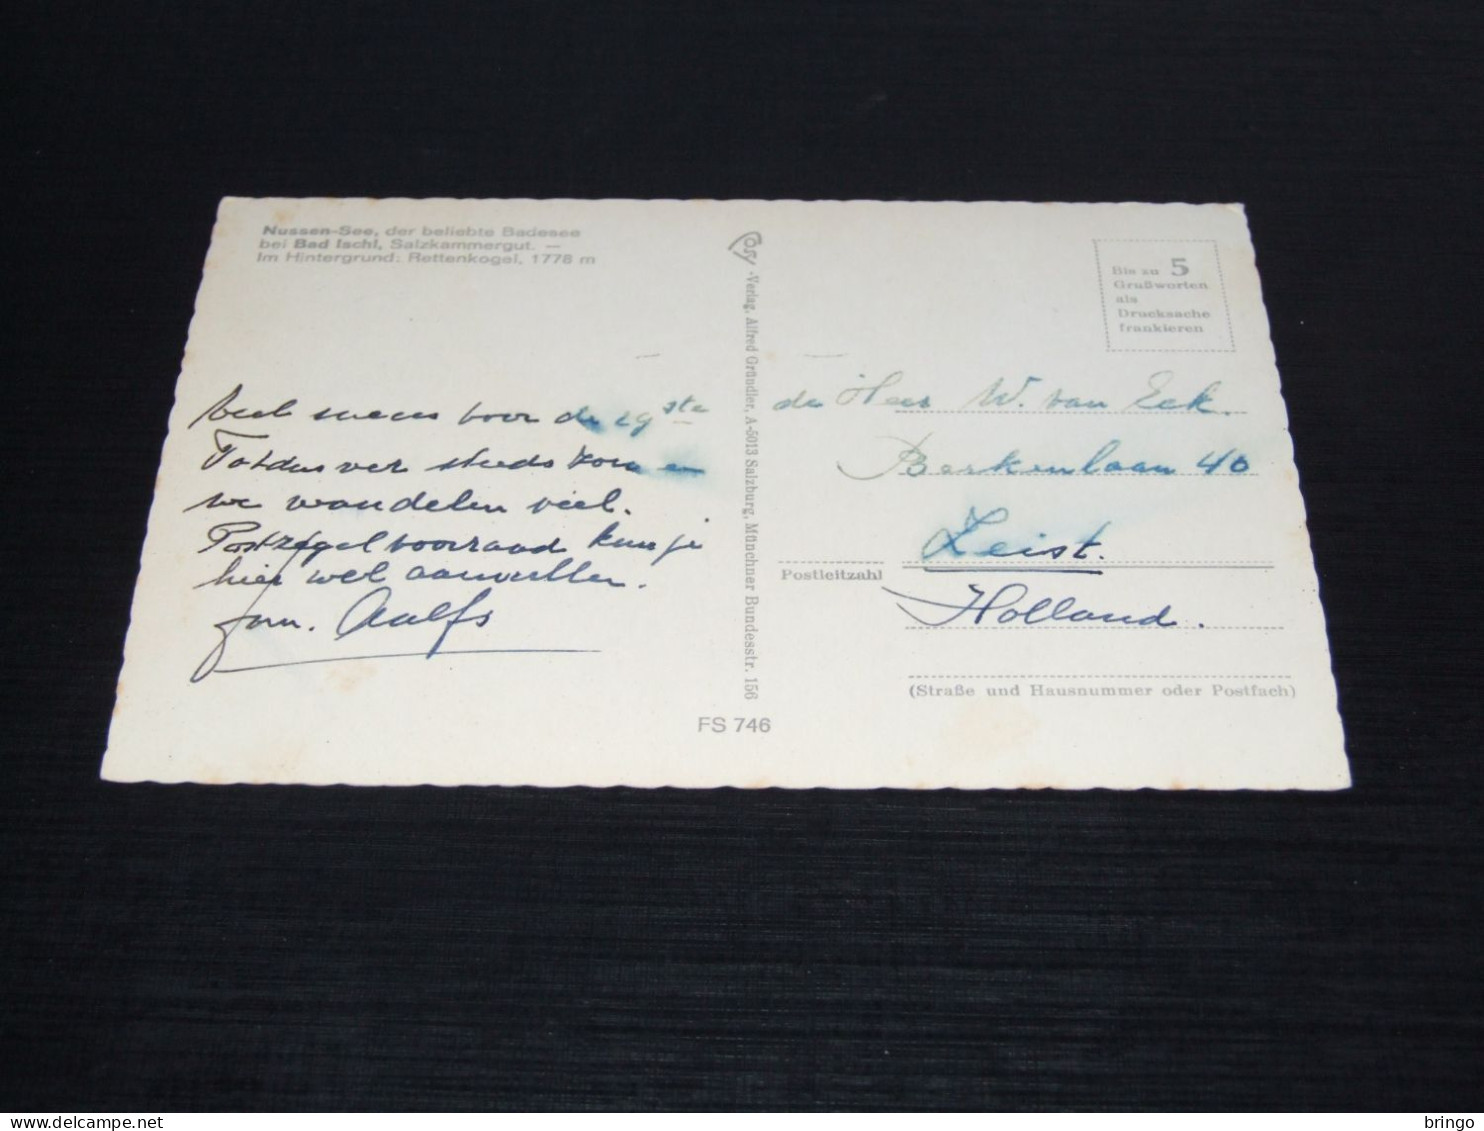 Nussen-See, der beliebte Badesee
bei Bad Ischl, Salzkammergut. —
Im Hintergrund: Rettenkogel, 1778 m
Cosy-Verlag, Alfred Gründler, A-5013 Salzburg, Münchner Bundesstr. 156
Bis zu 5
Grußworten
als
Drucksache
frankieren
Veel succes voor de 29ste
Tot dus ver steeds zon en
we wandelen veil.
Postzegelvoorraad kun je
hier wel aanvullen.
fam. Aalfs
de Heer W. van Eck.
Berkenlaan 40
Zeist.
Postleitzahl
Holland.
(Straße und Hausnummer oder Postfach)
FS 746
delcampe.net
bringo